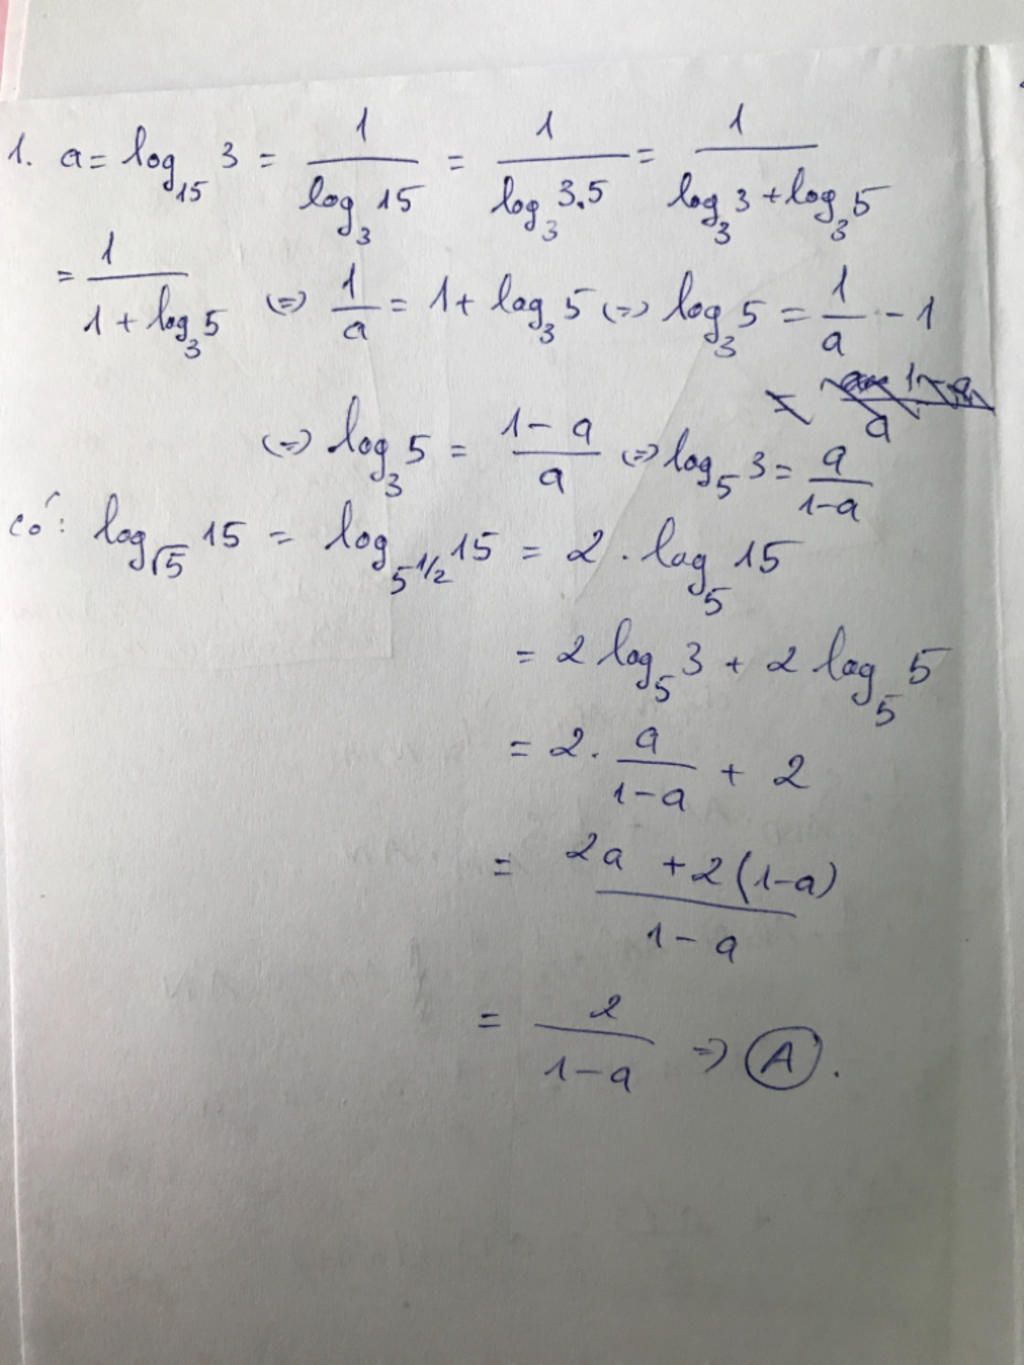 1. a = log₁₅ 3 = 1/(log₃ 15) = 1/(log₃ 3.5) = 1/(log₃ 3 + log₃ 5)
= 1/(1 + log₃ 5) (=) 1/a = 1 + log₃ 5 (=) log₃ 5 = 1/a - 1
(=) log₃ 5 = (1 - a)/a (=) log₅ 3 = a/(1-a)
có: log_√5 15 = log_5^1/2 15 = 2 . log₅ 15
= 2 log₅ 3 + 2 log₅ 5
= 2. a/(1-a) + 2
= (2a + 2(1-a))/(1 - a)
= 2/(1-a) => A.